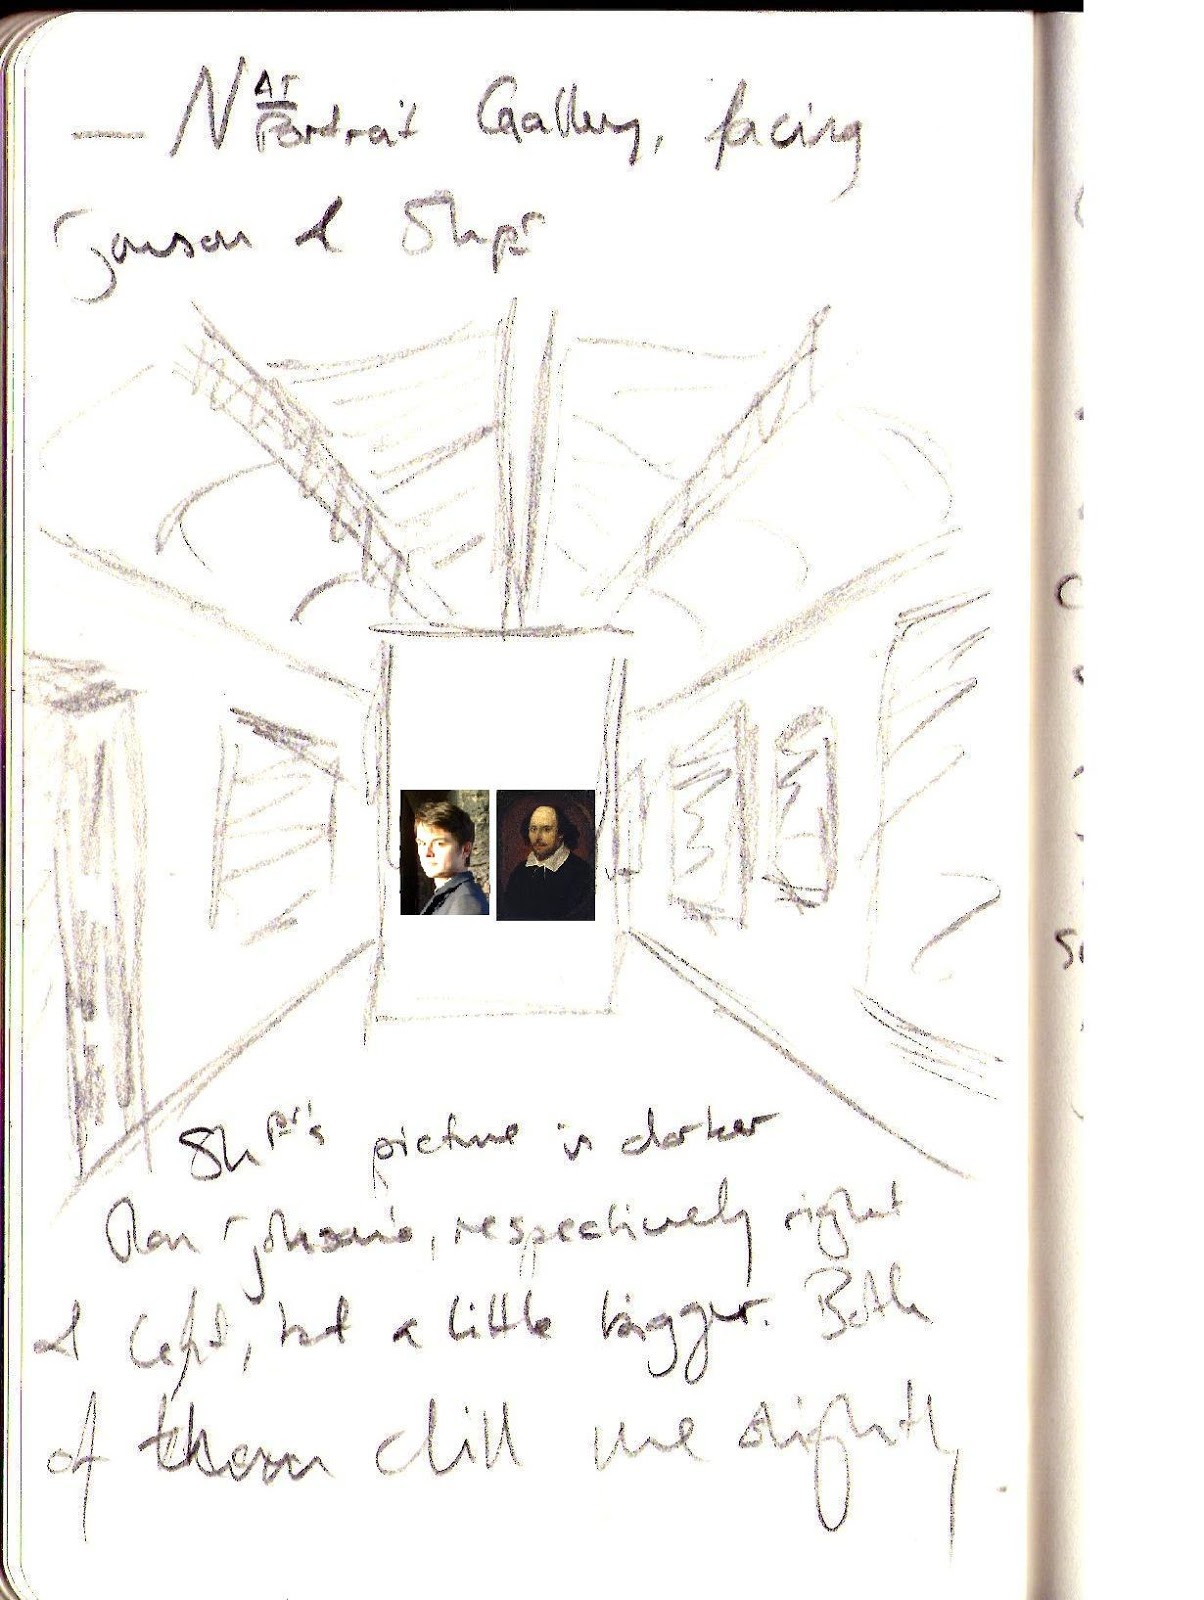 — Nat Portrait Gallery, facing
Jonson & Shpr
Shpr's picture is darker
than Jonson's, respectively right
& left, but a little bigger. Both
of them chill me slightly